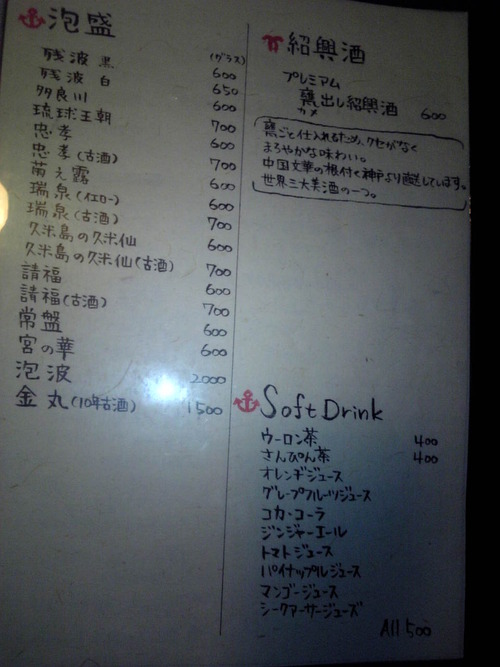 泡盛
(グラス)
残波 黒 600
残波 白 650
多良川 600
琉球王朝 700
忠孝 600
忠孝(古酒) 700
菊之露 600
瑞泉(イエロー) 600
瑞泉(古酒) 700
久米島の久米仙 600
久米島の久米仙(古酒) 700
請福 600
請福(古酒) 700
常盤 600
宮の華 600
泡波 2000
金丸(10年古酒) 1500
紹興酒
プレミアム
甕出し紹興酒 600
カメ
甕ごと仕入れるため、クセがなく
まろやかな味わい。
中国文華の根付く神戸より直送しています。
世界三大美酒の一つ。
Soft Drink
ウーロン茶 400
さんぴん茶 400
オレンヂジュース
グレープフルーツジュース
コカ・コーラ
ジンジャーエール
トマトジュース
パイナップルジュース
マンゴージュース
シークァーサージューズ
All 500